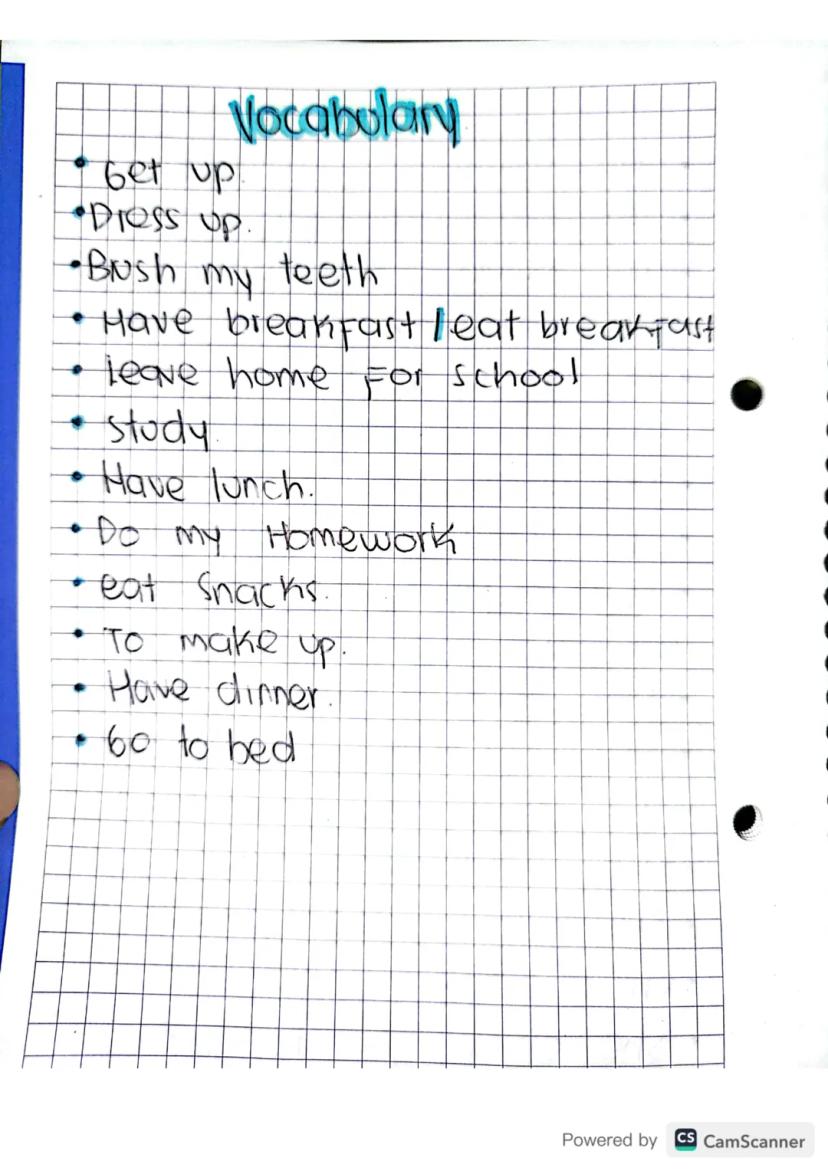 Vocabulary
• Get up.
• Dress up.
• Brush my teeth
• Have breakfast / eat breakfast
• leave home For school
• study.
• Have lunch.
• Do my Homework
• eat snacks.
• To make up.
• Have dinner.
• Go to bed
Powered by CS CamScanner